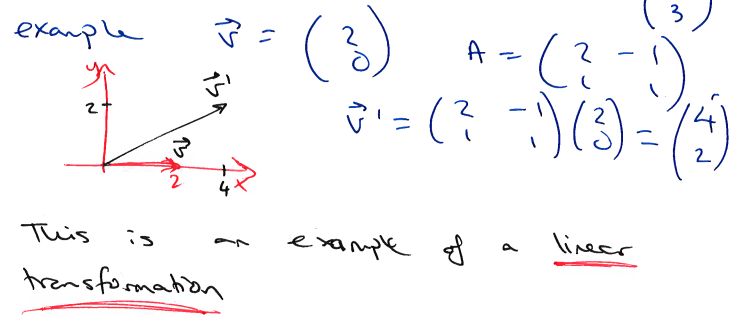 3)
example v⃗ = (2 0) A = (2 -1 1 1)
y
v⃗'
2
v⃗' = (2 -1 1 1)(2 0) = (4 2)
v⃗
2 4 x
This is an example of a linear
transformation